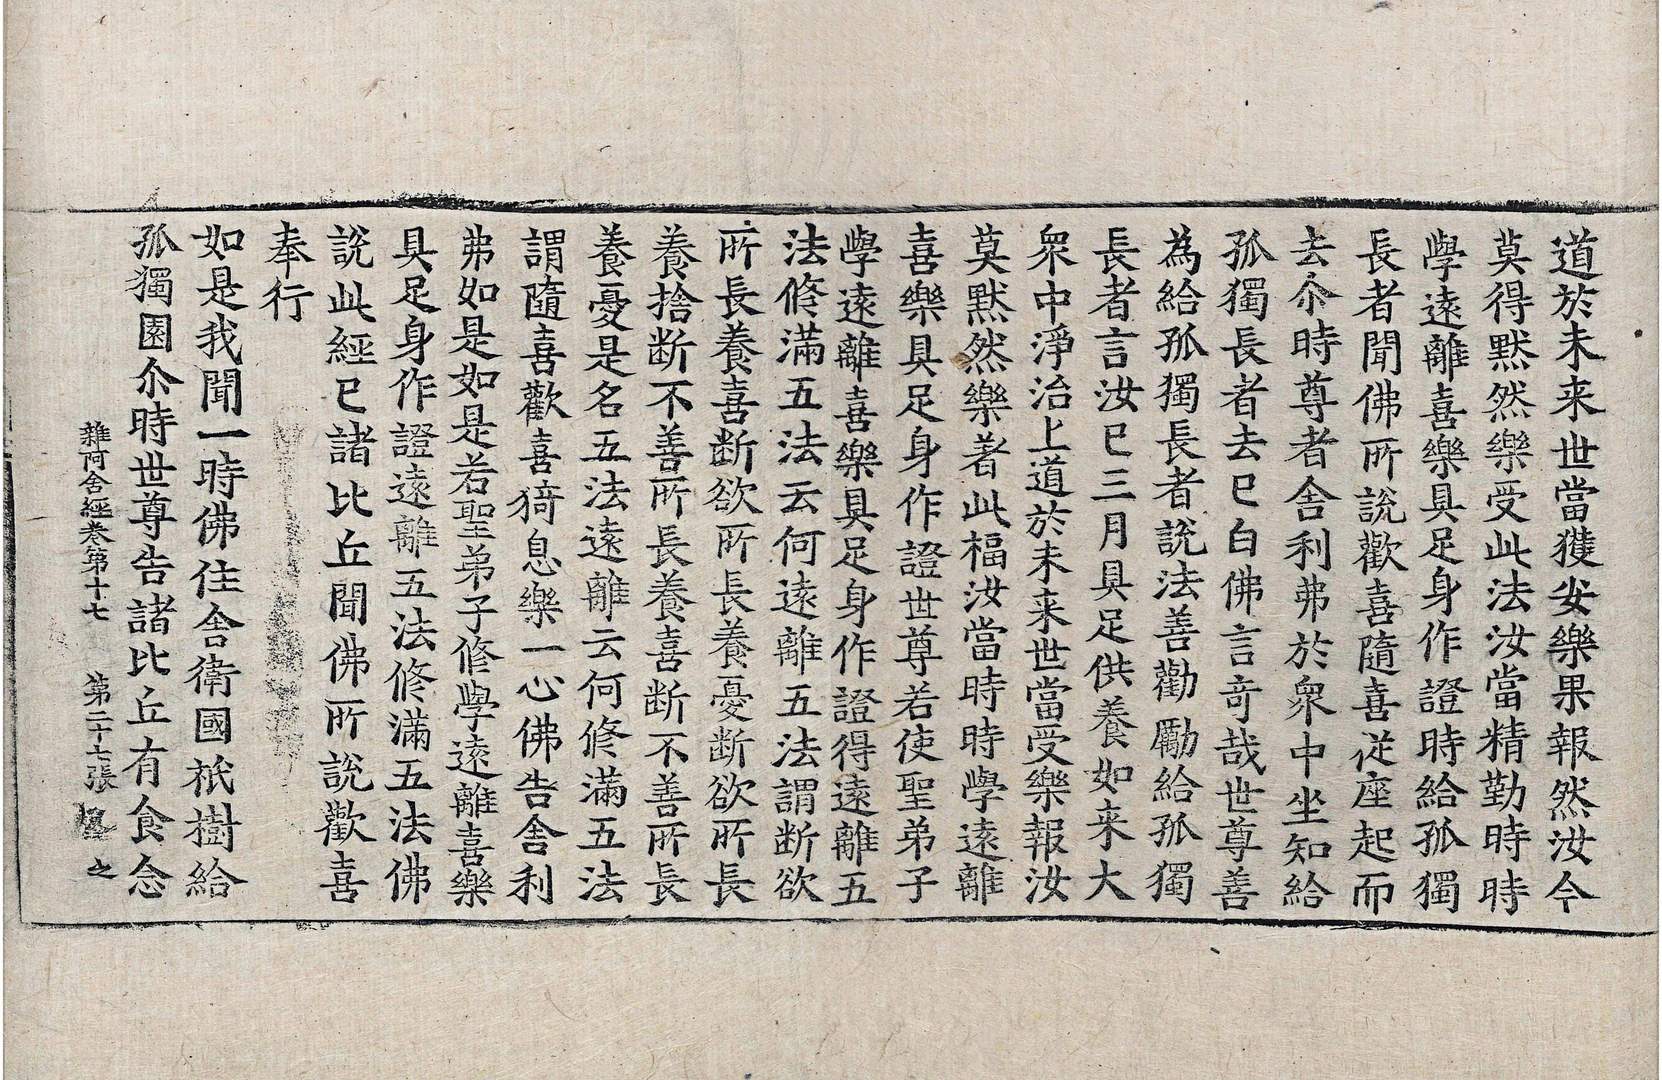 道於未来世當獲安樂果報然汝今
莫得默然樂受此法汝當精勤時時
學遠離喜樂具足身作證時給孤獨
長者聞佛所說歡喜隨喜従座起而
去尒時尊者舎利弗於衆中坐知給
孤獨長者去已白佛言竒哉世尊善
為給孤獨長者說法善勸勵給孤獨
長者言汝已三月具足供養如来大
衆中淨治上道於未来世當受樂報汝
莫默然樂著此福汝當時時學遠離
喜樂具足身作證世尊若使聖弟子
學遠離喜樂具足身作證得遠離五
法修滿五法云何遠離五法謂断欲
所長養喜断欲所長養憂断欲所長
養捨断不善所長養喜断不善所長
養憂是名五法遠離云何修滿五法
謂隨喜歡喜猗息樂一心佛告舎利
弗如是如是若聖弟子修學遠離喜樂
具足身作證遠離五法修滿五法佛
說此經已諸比丘聞佛所說歡喜
奉行
如是我聞一時佛住舎衛國祇樹給
孤獨園尒時世尊告諸比丘有食念
雜阿含經卷第十七 第二十七張 之